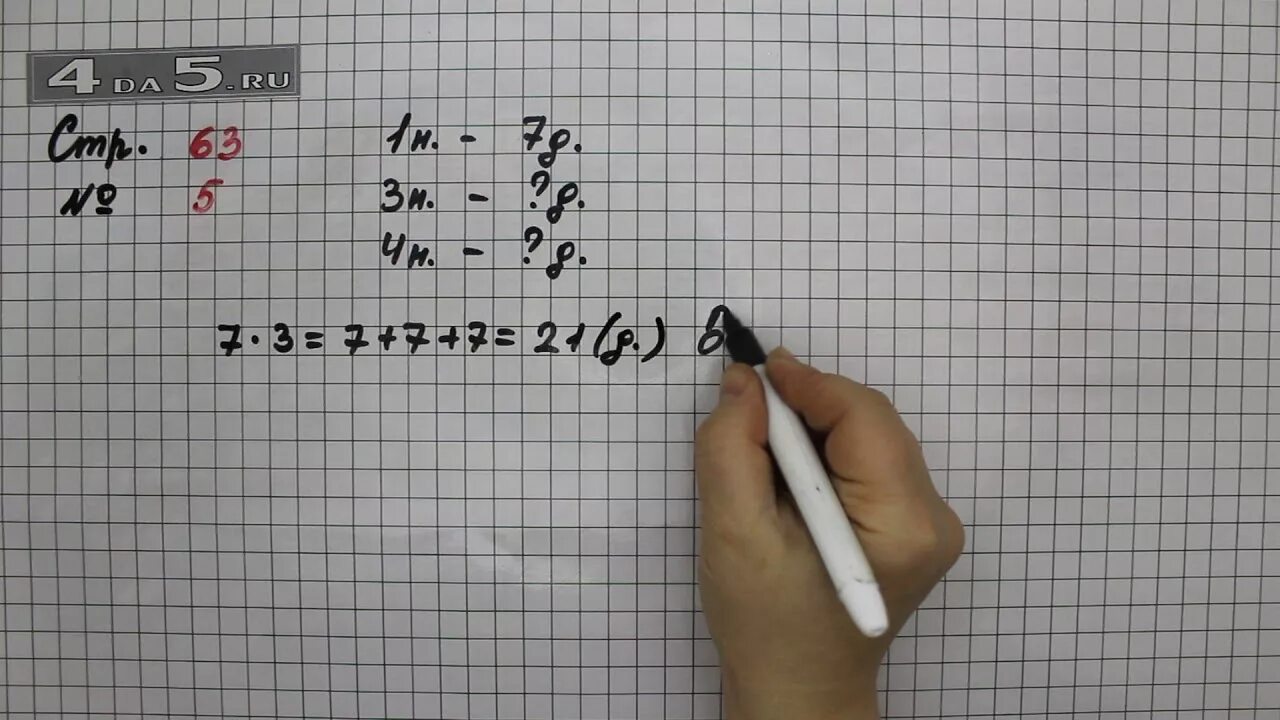 4DA5.RU
Стр. 63
№ 5
1н. - 7д.
3н. - ?д.
4н. - ?д.
7·3=7+7+7=21(д.) в